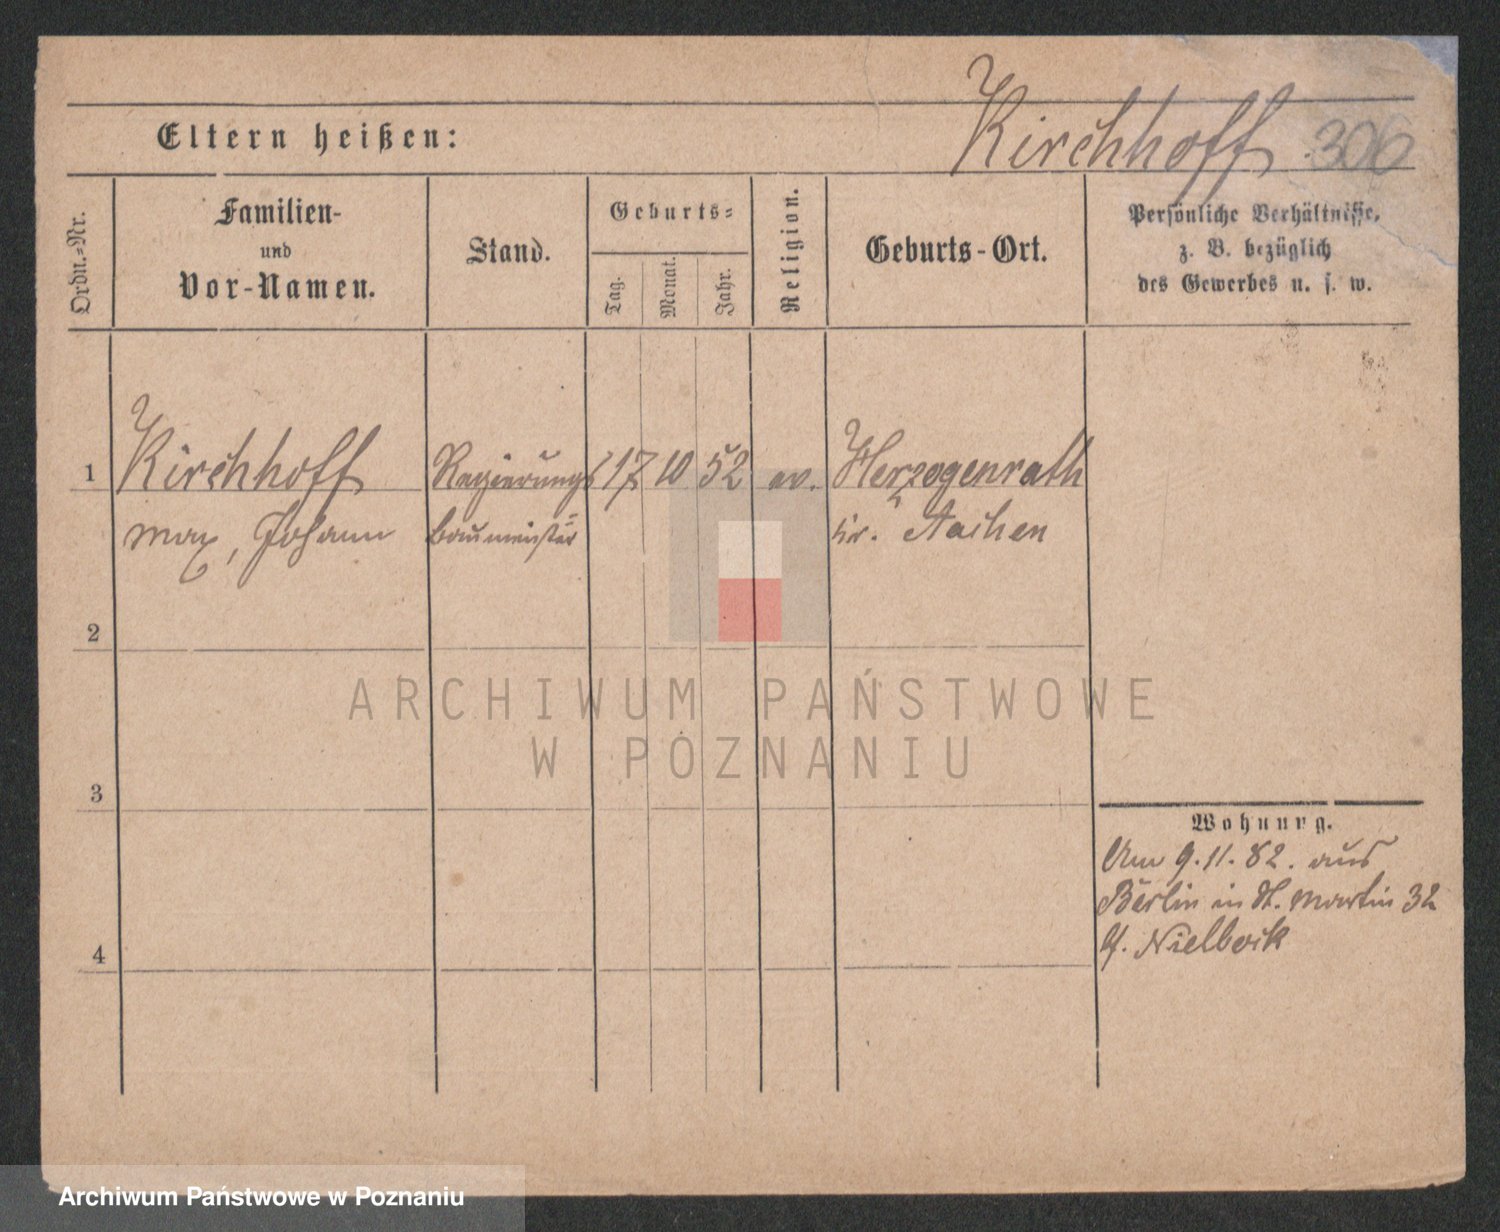 Kirchhoff 306
Eltern heißen:
Ordn.-Nr.
Familien-
und
Vor-Namen.
Stand.
Geburts-
Tag.
Monat.
Jahr.
Religion.
Geburts-Ort.
Persönliche Verhältnisse,
z. B. bezüglich
des Gewerbes u. s. w.
1 Kirchhoff Regierungs 17 10 52 ev. Herzogenrath
Max, Johann baumeister Kr. Aachen
2
3
4
Wohnung.
Am 9.11.82. aus
Berlin in St. Martin 32
Nielbock
ARCHIWUM PAŃSTWOWE
W POZNANIU
Archiwum Państwowe w Poznaniu